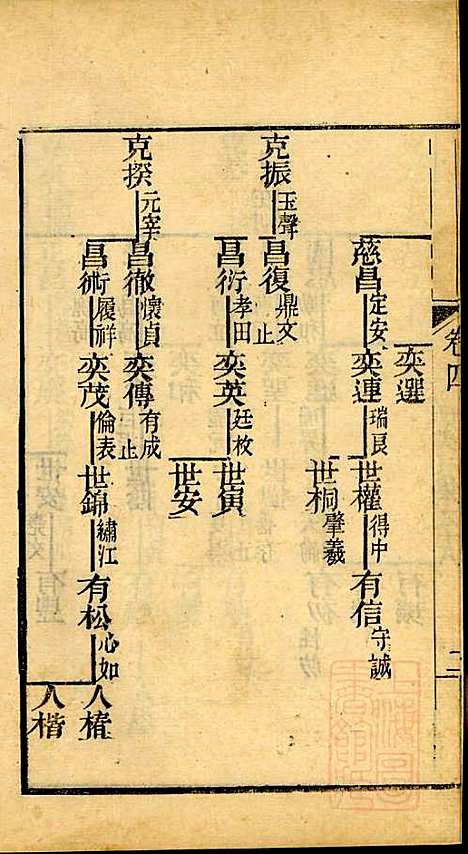 卷四
二
奕選
慈昌 定安 奕連 瑞良 世權 得中 有信 守誠
世桐 肇羲
克振 玉聲 昌復 鼎文 止
昌衍 孝田 奕英 廷枚 世寅
世安
克揆 元宰 昌徹 懷貞 奕傳 有成 止
昌術 履祥 奕茂 倫表 世錦 繡江 有松 心如 人椿
人楷